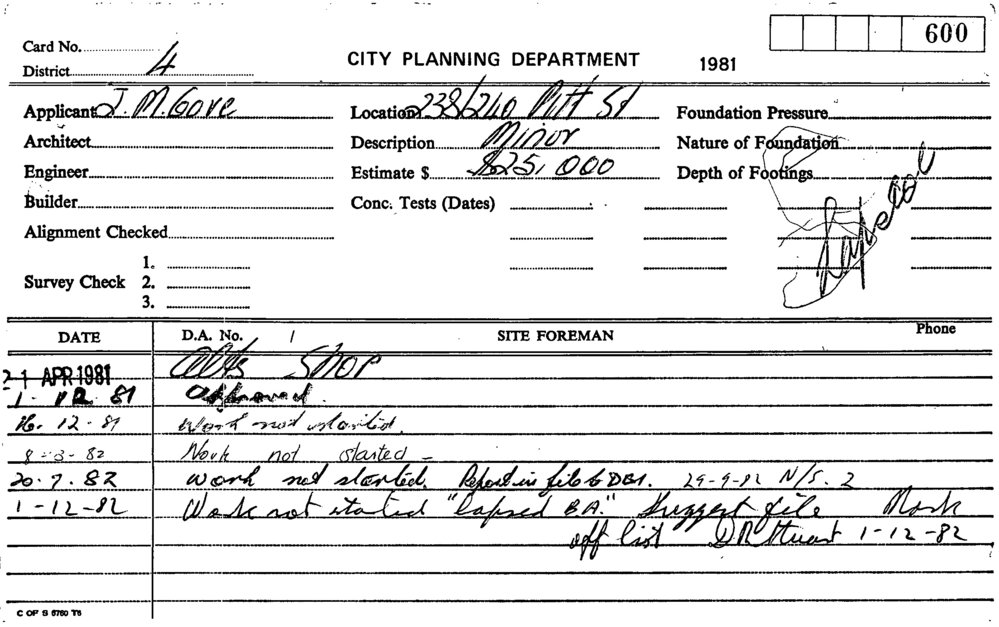 600
Card No.
District 4
CITY PLANNING DEPARTMENT 1981
Applicant J. M. Gore Location 238/240 Pitt St Foundation Pressure
Architect Description Minor Nature of Foundation
Engineer Estimate $ $25,000 Depth of Footings
Builder Conc. Tests (Dates)
Lapsed
Alignment Checked
Survey Check 1.
2.
3.
DATE D.A. No. SITE FOREMAN Phone
21 APR 1981 Alts Shop
1 12 81 Approved.
16. 12. 81 Work not started.
8-3-82 Work not started –
20.7.82 Work not started. Report in file to DBS. 29-9-82 N/S. 2
1-12-82 Work not started "lapsed B.A." Suggest file Mark
off list D R Stuart 1-12-82
C OF S 5760 T6